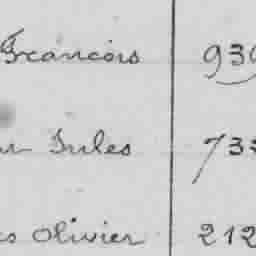 Francois 939
Jules 733
Olivier 212